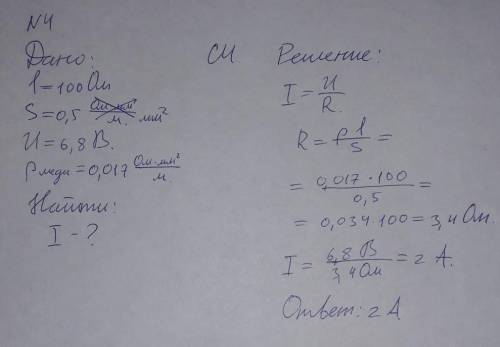 N4
Дано:
l = 100 Ом
S = 0,5 Ом·мм²/м. мм²
U = 6,8 В.
ρ меди = 0,017 Ом·мм²/м.
Найти:
I - ?
СИ
Решение:
I = U/R.
R = ρ l/S =
= 0,017·100/0,5 =
= 0,034·100 = 3,4 Ом.
I = 6,8 В/3,4 Ом = 2 А.
Ответ: 2 А